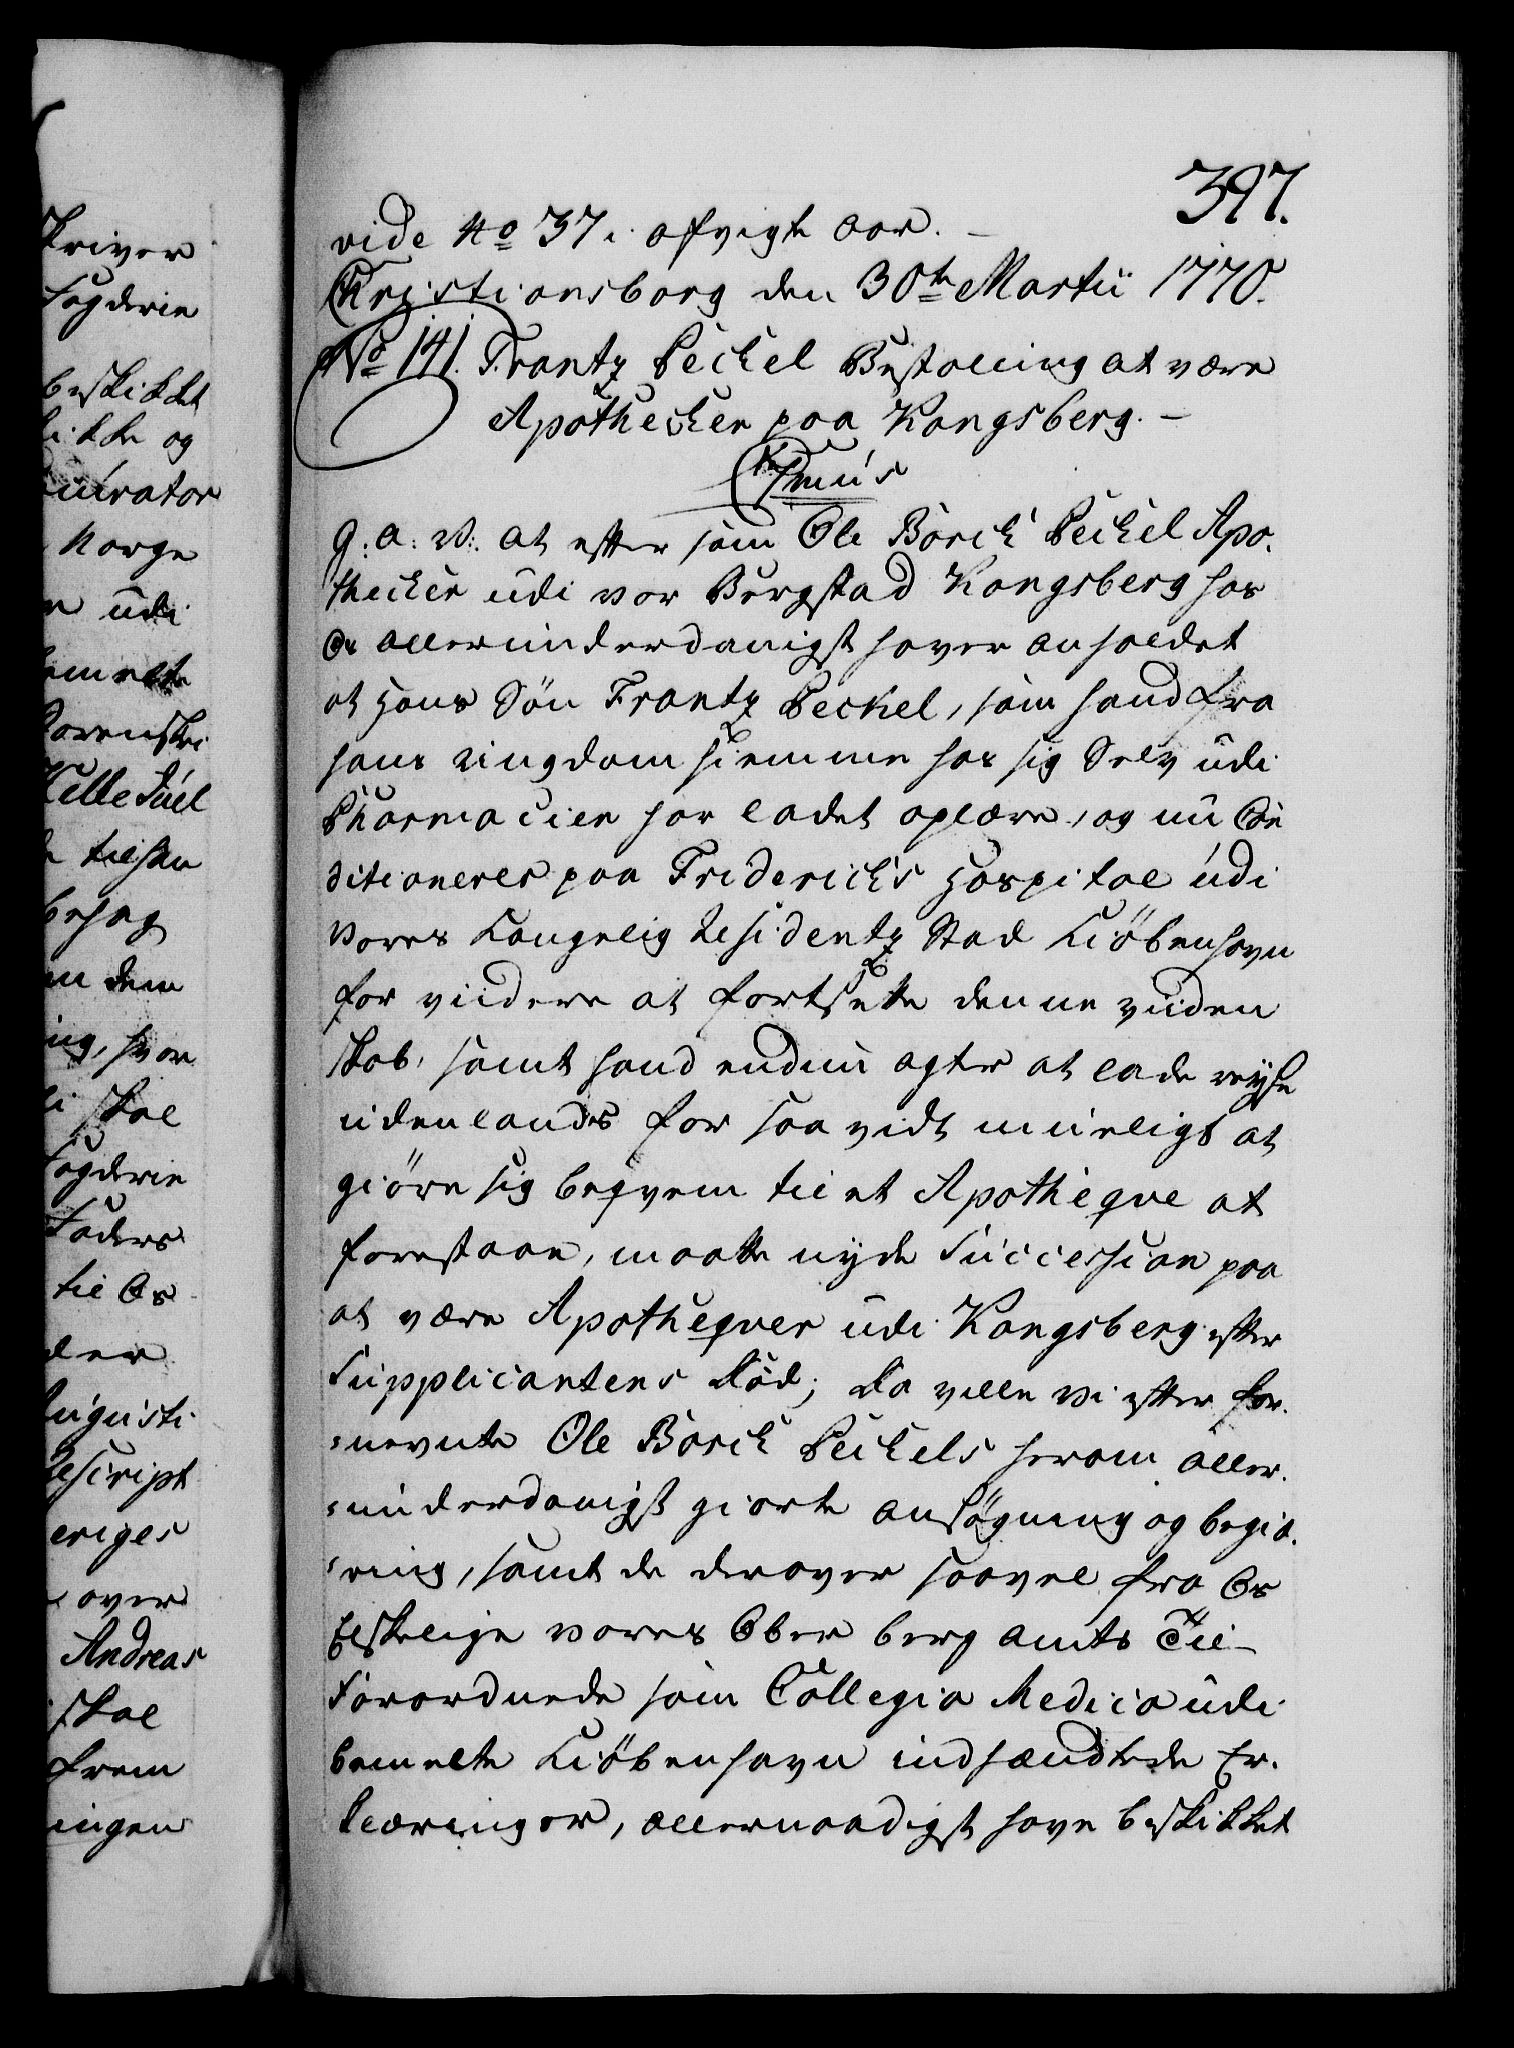 397.
vide No 37 i afvigte Aar. –
Christiansborg den 30te Martii 1770.
No 141. Frantz Peckel Bestalling at være
Apothecker paa Kongsberg. –
G: A: V: At eftersom Ole Borck Peckel Apo-
thecker udi vor Bergstad Kongsberg hos
Os allerunderdanigst haver anholdet
at hans Sön Frantz Peckel, som hand fra
hans ungdom hiemme hos sig Selv udi
Pharmacien har ladet oplære, og nu Con
ditionerer paa Friderichs Hospital udi
Vores Kongelig Residentz Stad Kiöbenhavn
for viidere at fortsette denne viiden
skab, samt hand endnu agter at lade reyse
udenlands for saavidt mueligt at
giöre sig beqvem til et Apotheqve at
forestaae, maatte nyde Succession paa
at være Apotheqver udi Kongsberg efter
Supplicantens Död; Da ville Vi efter for-
nevnte Ole Borck Peckels herom aller-
underdanigst giorte ansögning og begiæ-
ring, samt de derover saavel fra Os
Elskelige Vores Ober berg amts Til-
forordnede som Collegio Medico udi
bemelte Kiöbenhavn indsændtede Er-
klæringer, allernaadigst have beskikket
skriver
fogderie
beskikket
og
Curator
Norge
udi
bemelte
Juel
den
befag
dem
hvor
skal
fogderie
til Os
der
Augusti
Rescript
over
Andreas
skal
frem
ingen